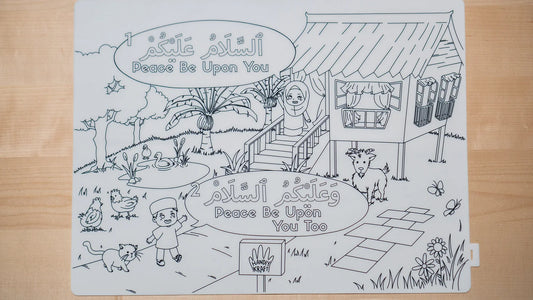 1
اَلسَّلَامُ عَلَيْكُمْ
Peace Be Upon You
2
وَعَلَيْكُمُ السَّلَامُ
Peace Be Upon
You Too
KRAFT